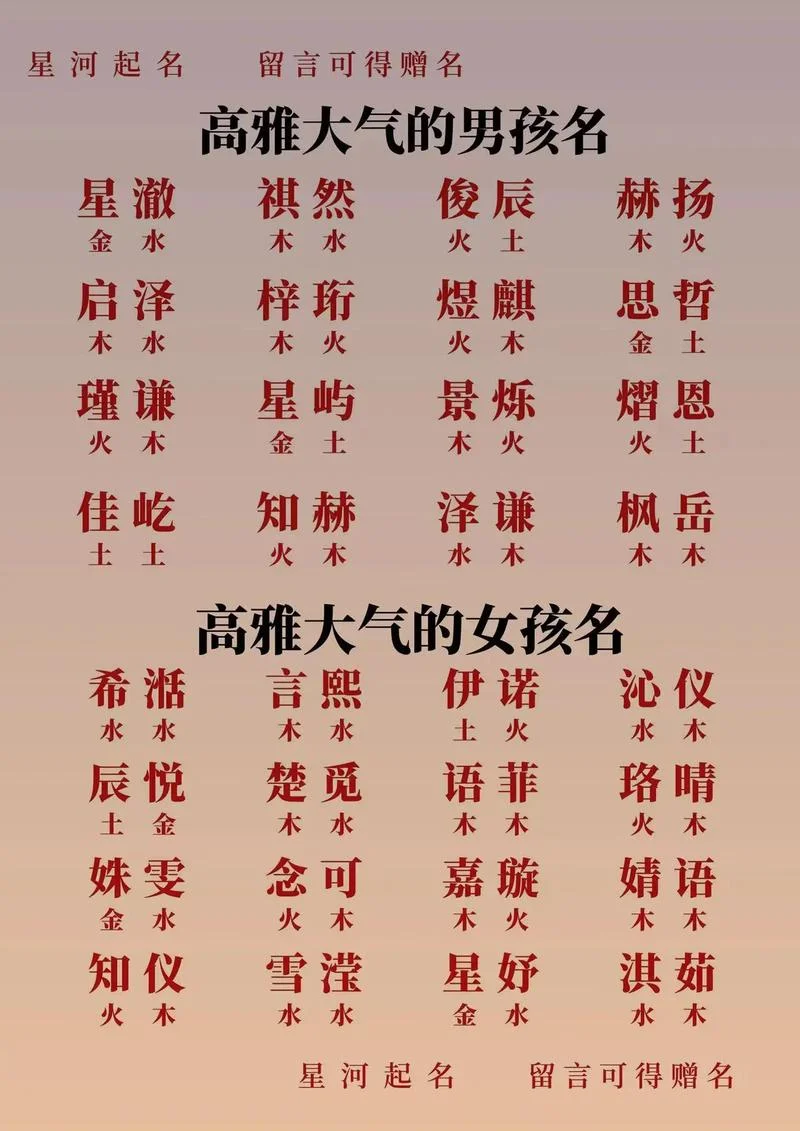 星河起名 留言可得赠名
高雅大气的男孩名
星澈 祺然 俊辰 赫扬
金水 木水 火土 木火
启泽 梓珩 煜麒 思哲
木水 木火 火木 金土
瑾谦 星屿 景烁 熠恩
火木 金土 木火 火土
佳屹 知赫 泽谦 枫岳
土土 火木 水木 木木
高雅大气的女孩名
希湉 言熙 伊诺 沁仪
水水 木水 土火 水木
辰悦 楚觅 语菲 珞晴
土金 木水 木木 火木
姝雯 念可 嘉璇 婧语
金水 火木 木火 木木
知仪 雪滢 星妤 淇茹
火木 水水 金水 水木
星河起名 留言可得赠名